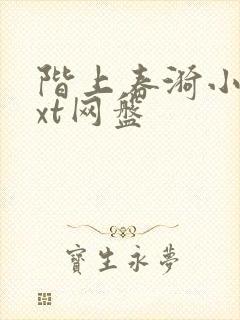 阶上春漪小
xt网盘
寶生永夢